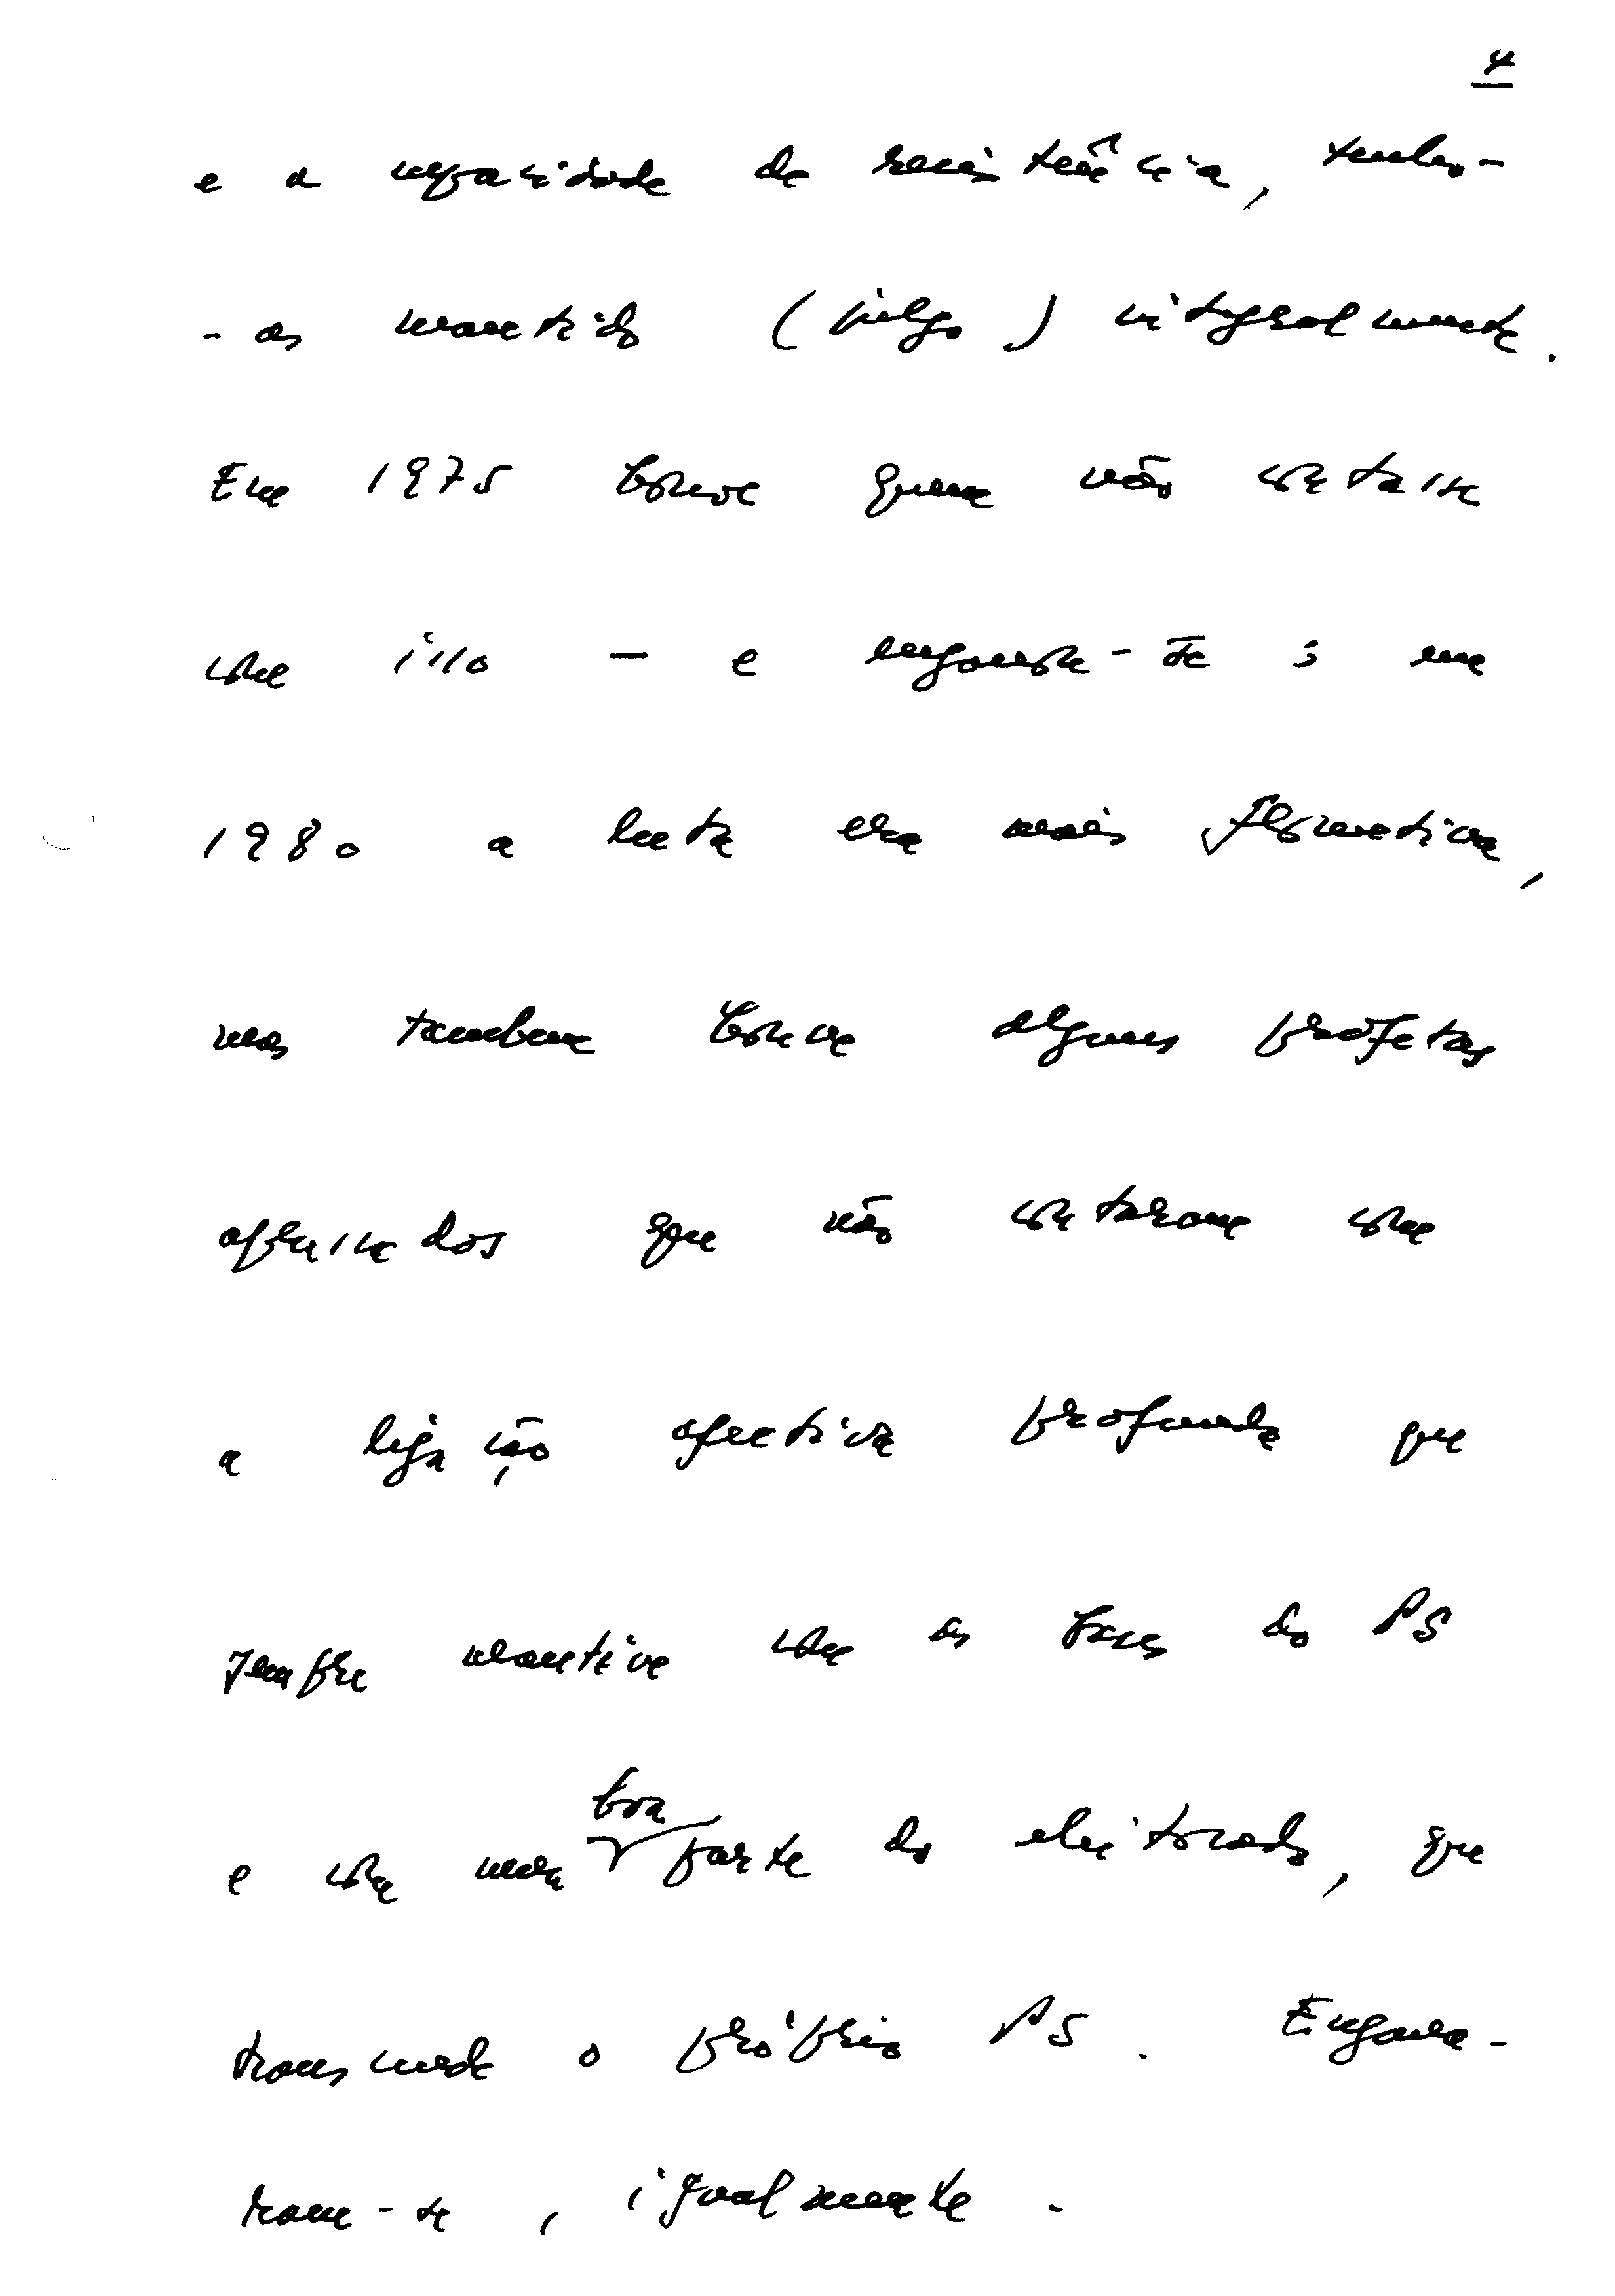 4
e a capacidade de resistência, tenho-
-as mantido (julgo) integralmente.
Em 1975 houve quem não contasse
com isso — e enganou-se; em
1980 a luta era mais
mas também houve alguns profetas
apressados que não contaram com
a ligação afectiva profunda que
sempre mantive com as bases do PS
e com uma boa parte do eleitorado, que
transcende o próprio PS. Engana-
ram-se, igualmente.